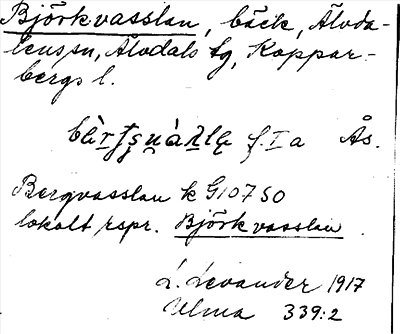 Björkvasslan, bäck, Älvda-
lens sn, Älvdals tg, Koppar-
bergs l.
f. I a Ås.
Bergvasslan k G10750
lokalt rspr. Björkvasslan
L. Levander 1917
Ulma 339:2